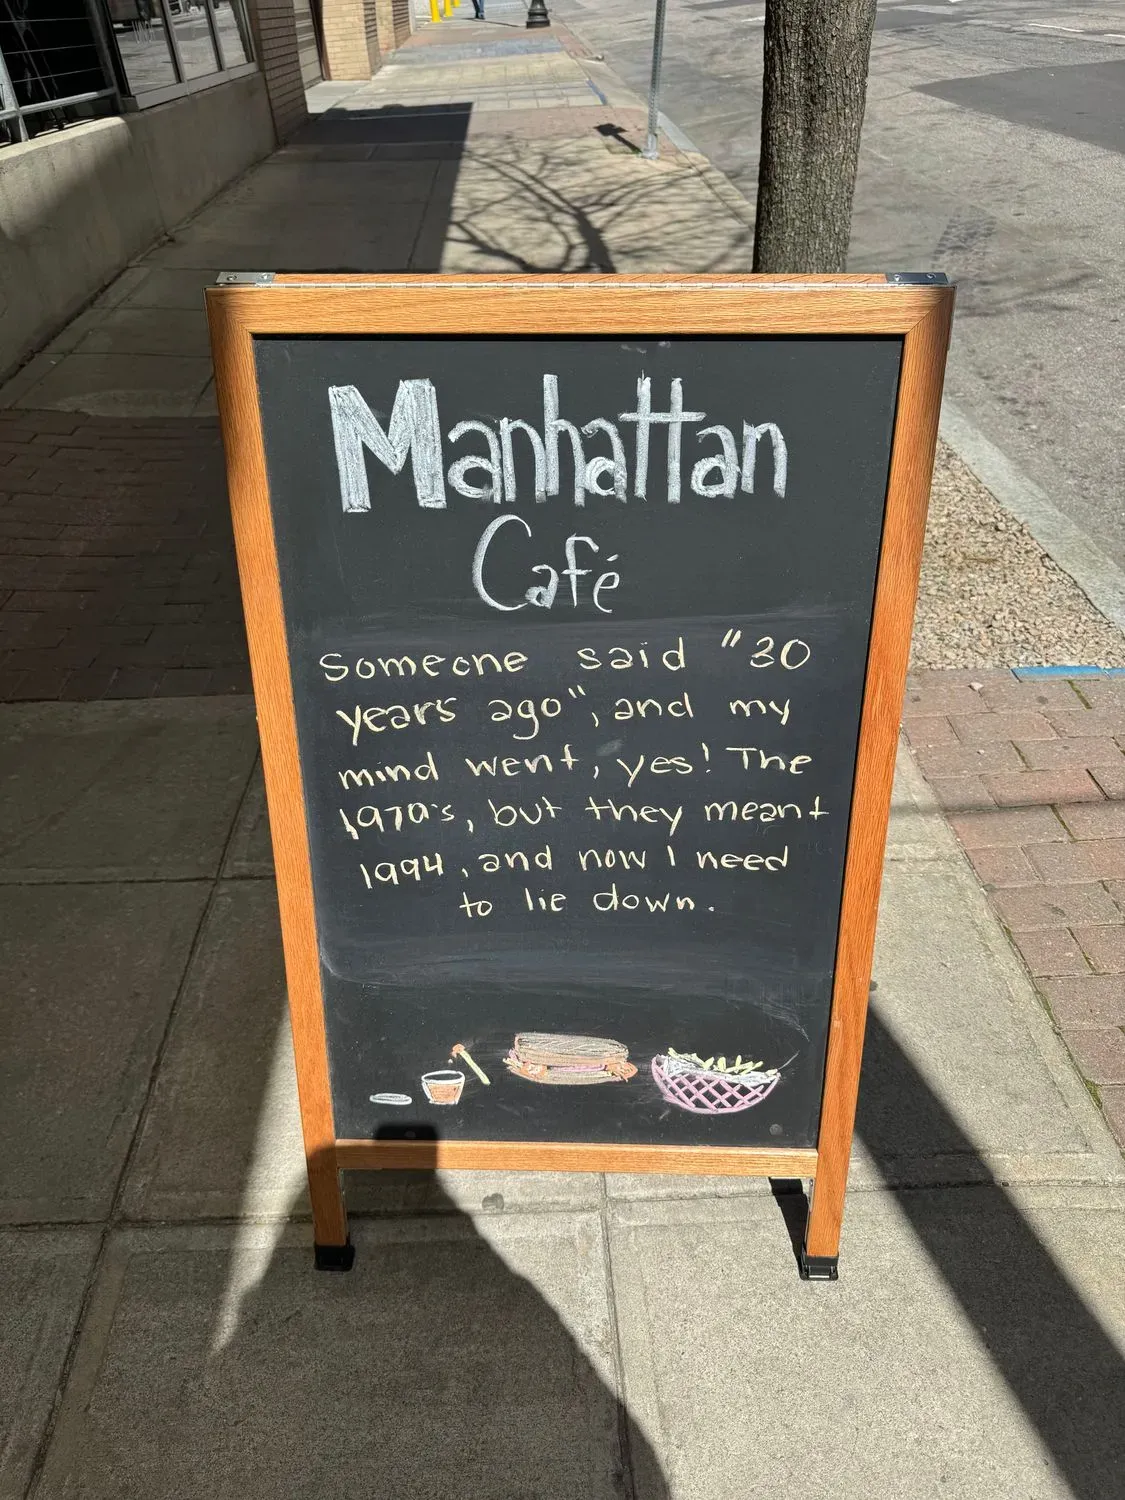 Manhattan
Café
Someone said "30
years ago", and my
mind went, yes! The
1970's, but they meant
1994, and now I need
to lie down.